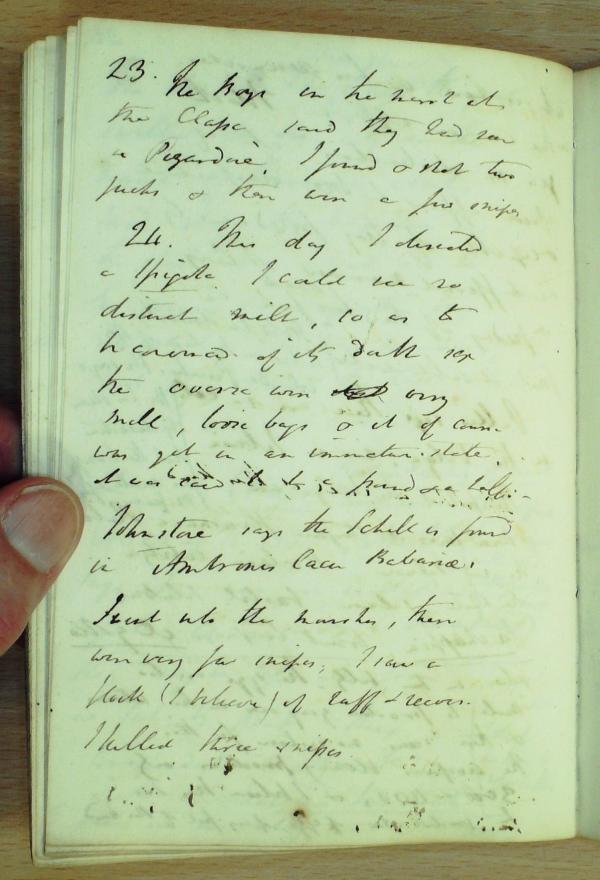 23. The Boys in the marsh at
the Clapa said they had seen
a Pizardone, I found & shot two
jacks & there were a few snipes
24. This day I dissected
a Spigola I could see no
distinct milt, so as to
be convinced of its doubtful sex
the ovaria were very
small, loose bags & it of course
was yet in an immature state.
it was to a pound & a half
Johnstone says the Schell is found
in Ambrosia
I went into the marshes, there
were very few snipes, I saw a
flock (I believe) of ruff & reeves.
I killed three snipes.